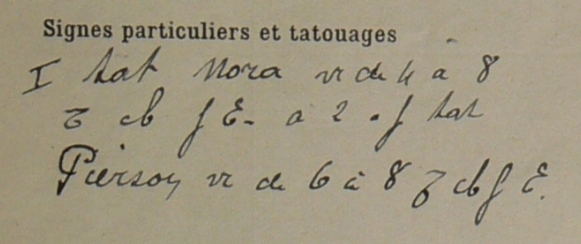 Signes particuliers et tatouages
I tat Nora vr de 4 à 8
cb f E. a 2. f tat
Pierson vr de 6 à 8 cb f E.